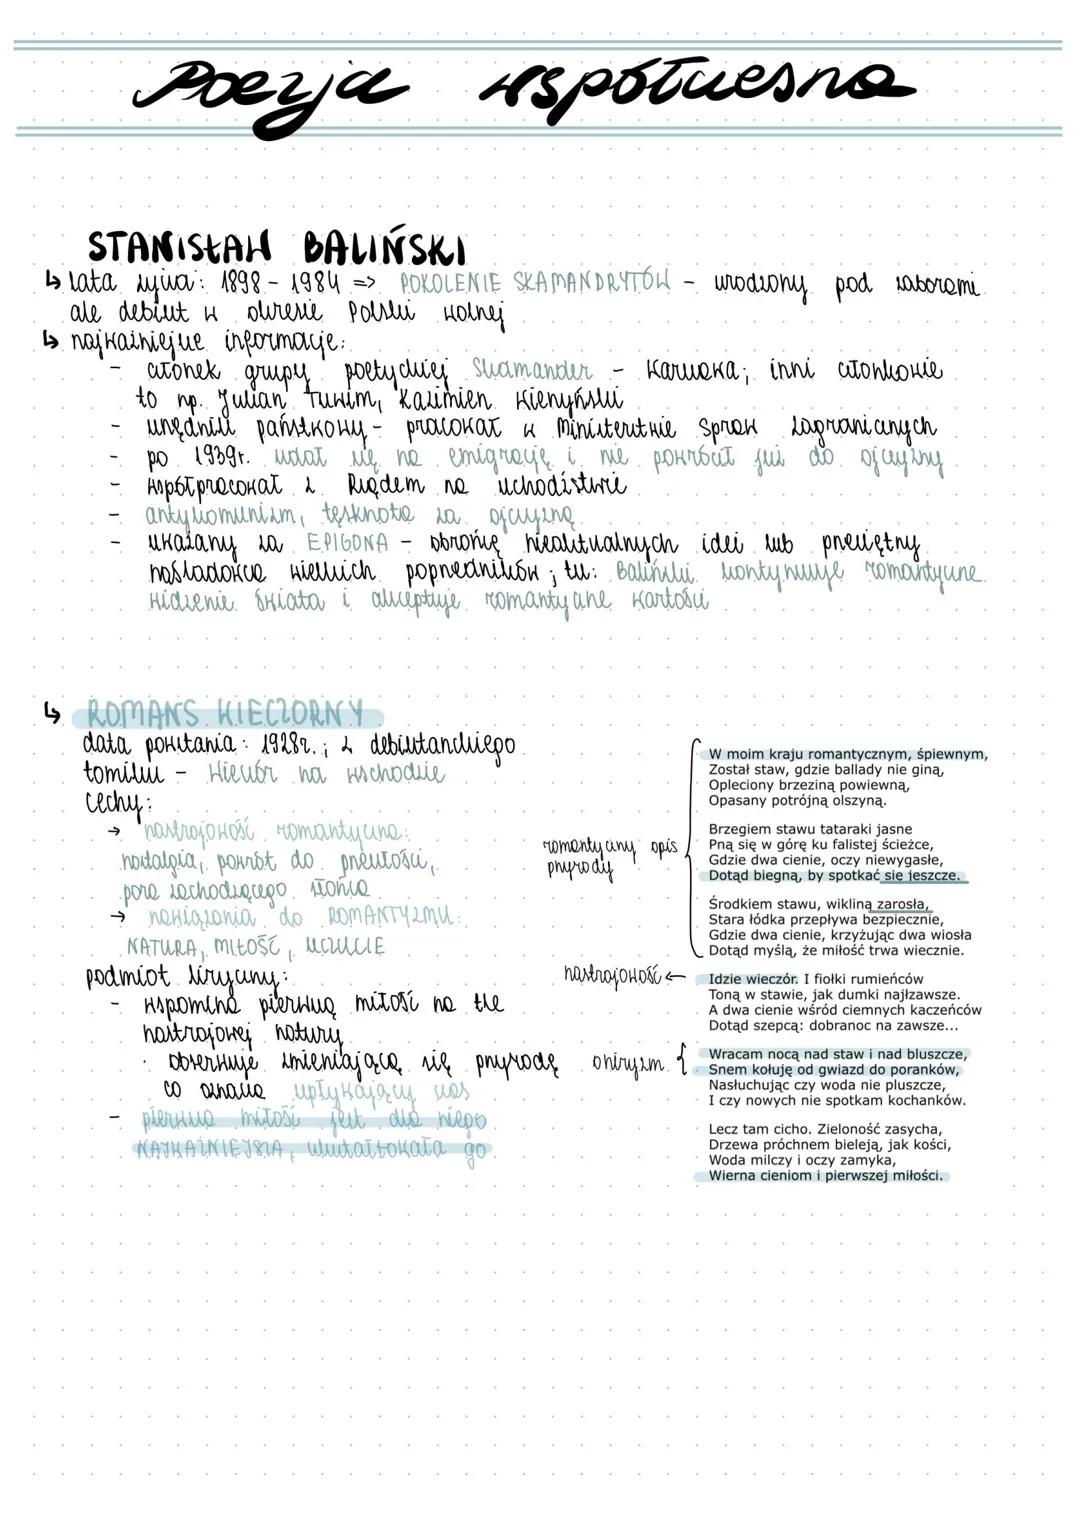 Poezja współczesna
STANISŁAW BALIŃSKI
↳ lata życia: 1898 - 1984 => POKOLENIE SKAMANDRYTÓW - urodzony pod zaborami
ale debiut w okresie Polski wolnej
↳ najważniejsze informacje:
- członek grupy poetyckiej Skamander - Karwoka; inni członkowie
to np. Julian Tuwim, Kazimierz Wierzyński
- urzędnik państwowy - pracował w Ministerstwie Spraw Zagranicznych
- po 1939r. udał się na emigrację i nie powrócił już do ojczyzny
- współpracował z Rządem na uchodźstwie
- antykomunizm, tęsknota za ojczyzną
- uważany za EPIGONA - obrońcę nieaktualnych idei lub przeciętny
naśladowca wielkich poprzedników; tu: Baliński kontynuuje romantyczne
widzenie świata i akceptuje romantyczne wartości
↳ ROMANS WIECZORNY
data powstania: 1928r.; z debiutanckiego
tomiku - Wieczór na wschodzie
cechy:
→ nastrojowość romantyczna:
nostalgia, powrót do przeszłości,
pora zachodzącego słońca
→ nawiązania do ROMANTYZMU:
NATURA, MIŁOŚĆ, UCZUCIE
podmiot liryczny:
- wspomina pierwszą miłość na tle
nastrojowej natury
· obserwuje zmieniającą się przyrodę
co oznacza upływający czas
- pierwsza miłość jest dla niego
NAJWAŻNIEJSZA, ukształtowała go
romantyczny opis
przyrody
W moim kraju romantycznym, śpiewnym,
Został staw, gdzie ballady nie giną,
Opleciony brzeziną powiewną,
Opasany potrójną olszyną.
Brzegiem stawu tataraki jasne
Pną się w górę ku falistej ścieżce,
Gdzie dwa cienie, oczy niewygasłe,
Dotąd biegną, by spotkać się jeszcze.
Środkiem stawu, wikliną zarosła,
Stara łódka przepływa bezpiecznie,
Gdzie dwa cienie, krzyżując dwa wiosła
Dotąd myślą, że miłość trwa wiecznie.
nastrojowość ←
Idzie wieczór. I fiołki rumieńców
Toną w stawie, jak dumki najłzawsze.
A dwa cienie wśród ciemnych kaczeńców
Dotąd szepcą: dobranoc na zawsze...
oniryzm {
Wracam nocą nad staw i nad bluszcze,
Snem kołuję od gwiazd do poranków,
Nasłuchując czy woda nie pluszcze,
I czy nowych nie spotkam kochanków.
Lecz tam cicho. Zieloność zasycha,
Drzewa próchnem bieleją, jak kości,
Woda milczy i oczy zamyka,
Wierna cieniom i pierwszej miłości.